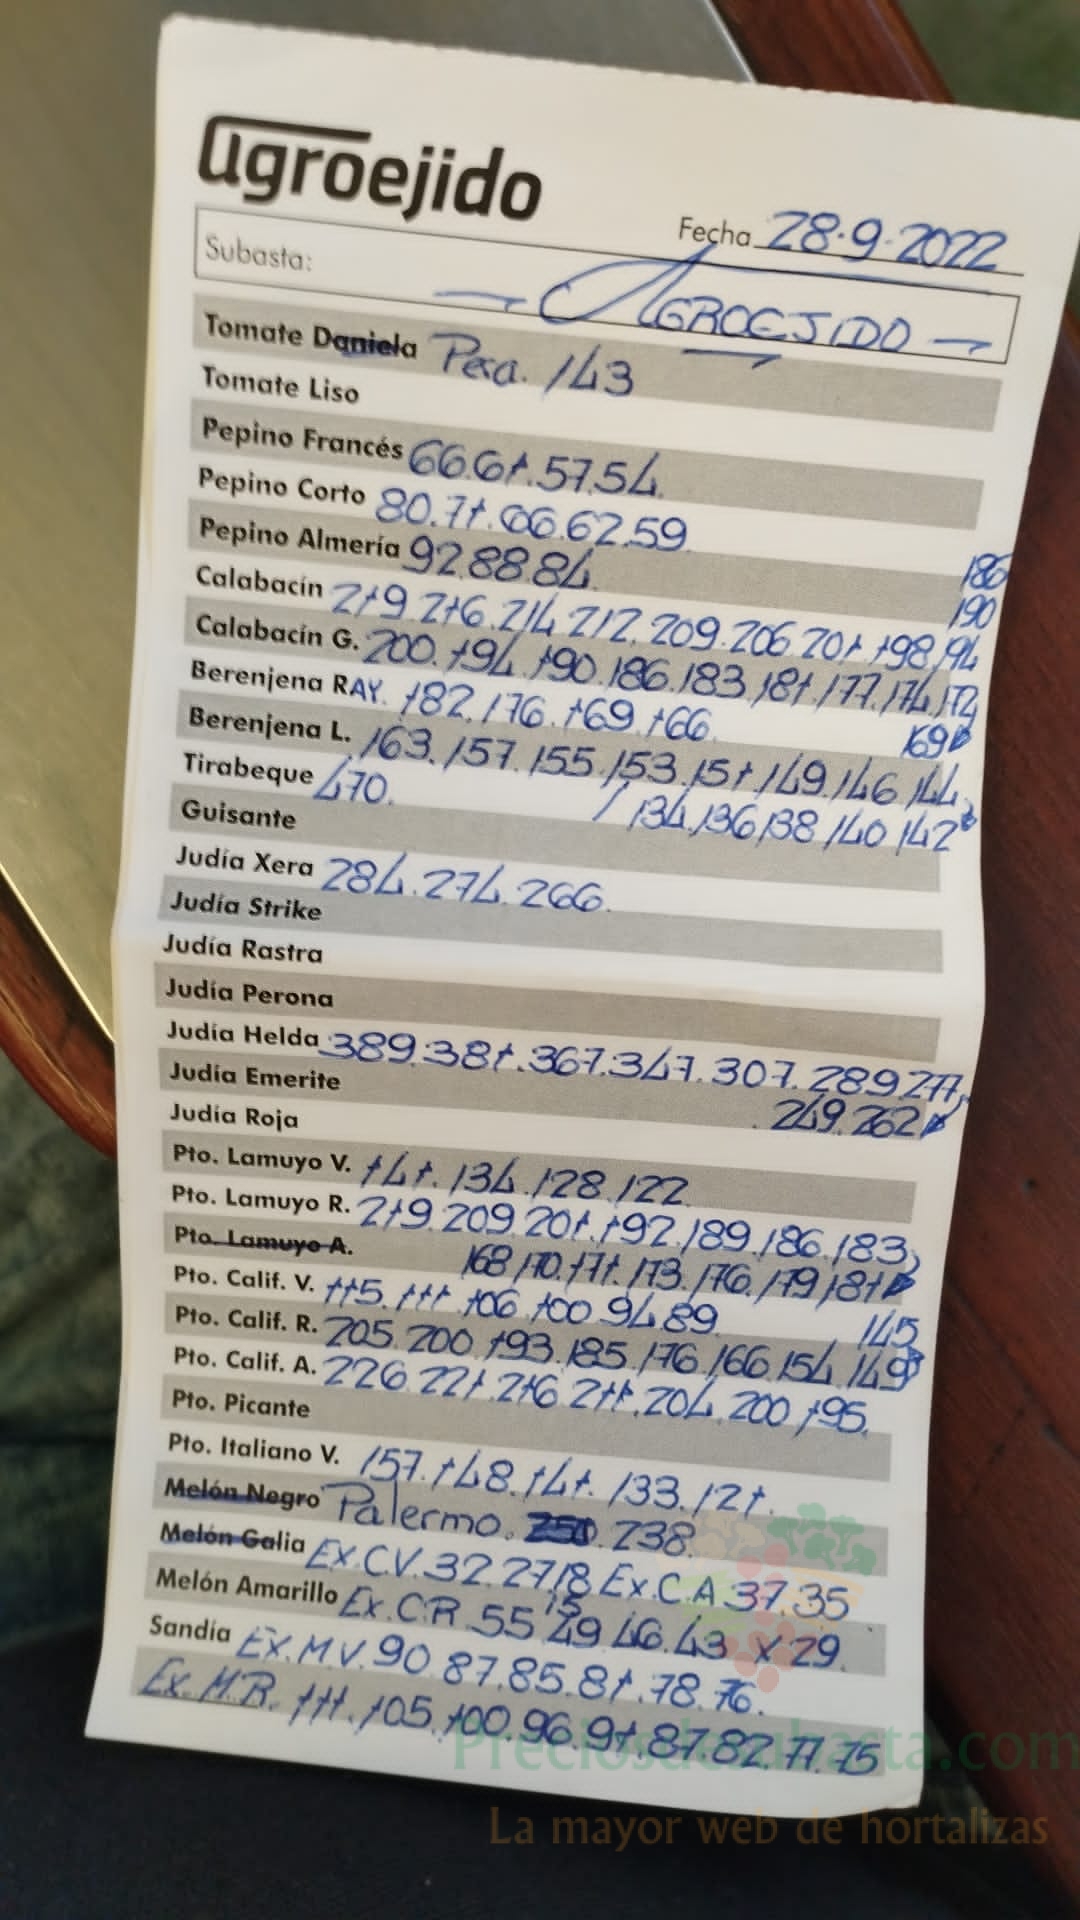 agroejido
Fecha 28.9.2022
Subasta: AGROEJIDO
Tomate Daniela Pera. 143
Tomate Liso
Pepino Francés 66.61.57.54
Pepino Corto 80.71.66.62.59
Pepino Almería 92.88.84
186
Calabacín 219.216.214.212.209.206.201.198.194
190
Calabacín G. 200.194.190.186.183.181.177.174.172
Berenjena RAY. 182.176.169.166. 169
Berenjena L. 163.157.155.153.151.149.146.144
Tirabeque 470. / 134.136.138.140.142
Guisante
Judía Xera 284.274.266.
Judía Strike
Judía Rastra
Judía Perona
Judía Helda 389.381.367.347.307.289.277
Judía Emerite 249.262
Judía Roja
Pto. Lamuyo V. 141.134.128.122
Pto. Lamuyo R. 219.209.201.192.189.186.183
Pto. Lamuyo A. 168.170.171.173.176.179.181
Pto. Calif. V. 115.111.106.100.94.89 145
Pto. Calif. R. 205.200.193.185.176.166.154.149
Pto. Calif. A. 226.221.216.211.204.200.195.
Pto. Picante
Pto. Italiano V. 157.148.141.133.121.
Melón Negro Palermo. 238.
Melón Galia Ex.C.V.32.27.18 Ex.C.A 37.35
15
Melón Amarillo Ex.C.R.55 49 46.43 X 29.
Sandía Ex.M.V.90.87.85.81.78.76.
Ex.M.R. 111.105.100.96.91.87.82.77.75
Preciosdesubasta.com
La mayor web de hortalizas